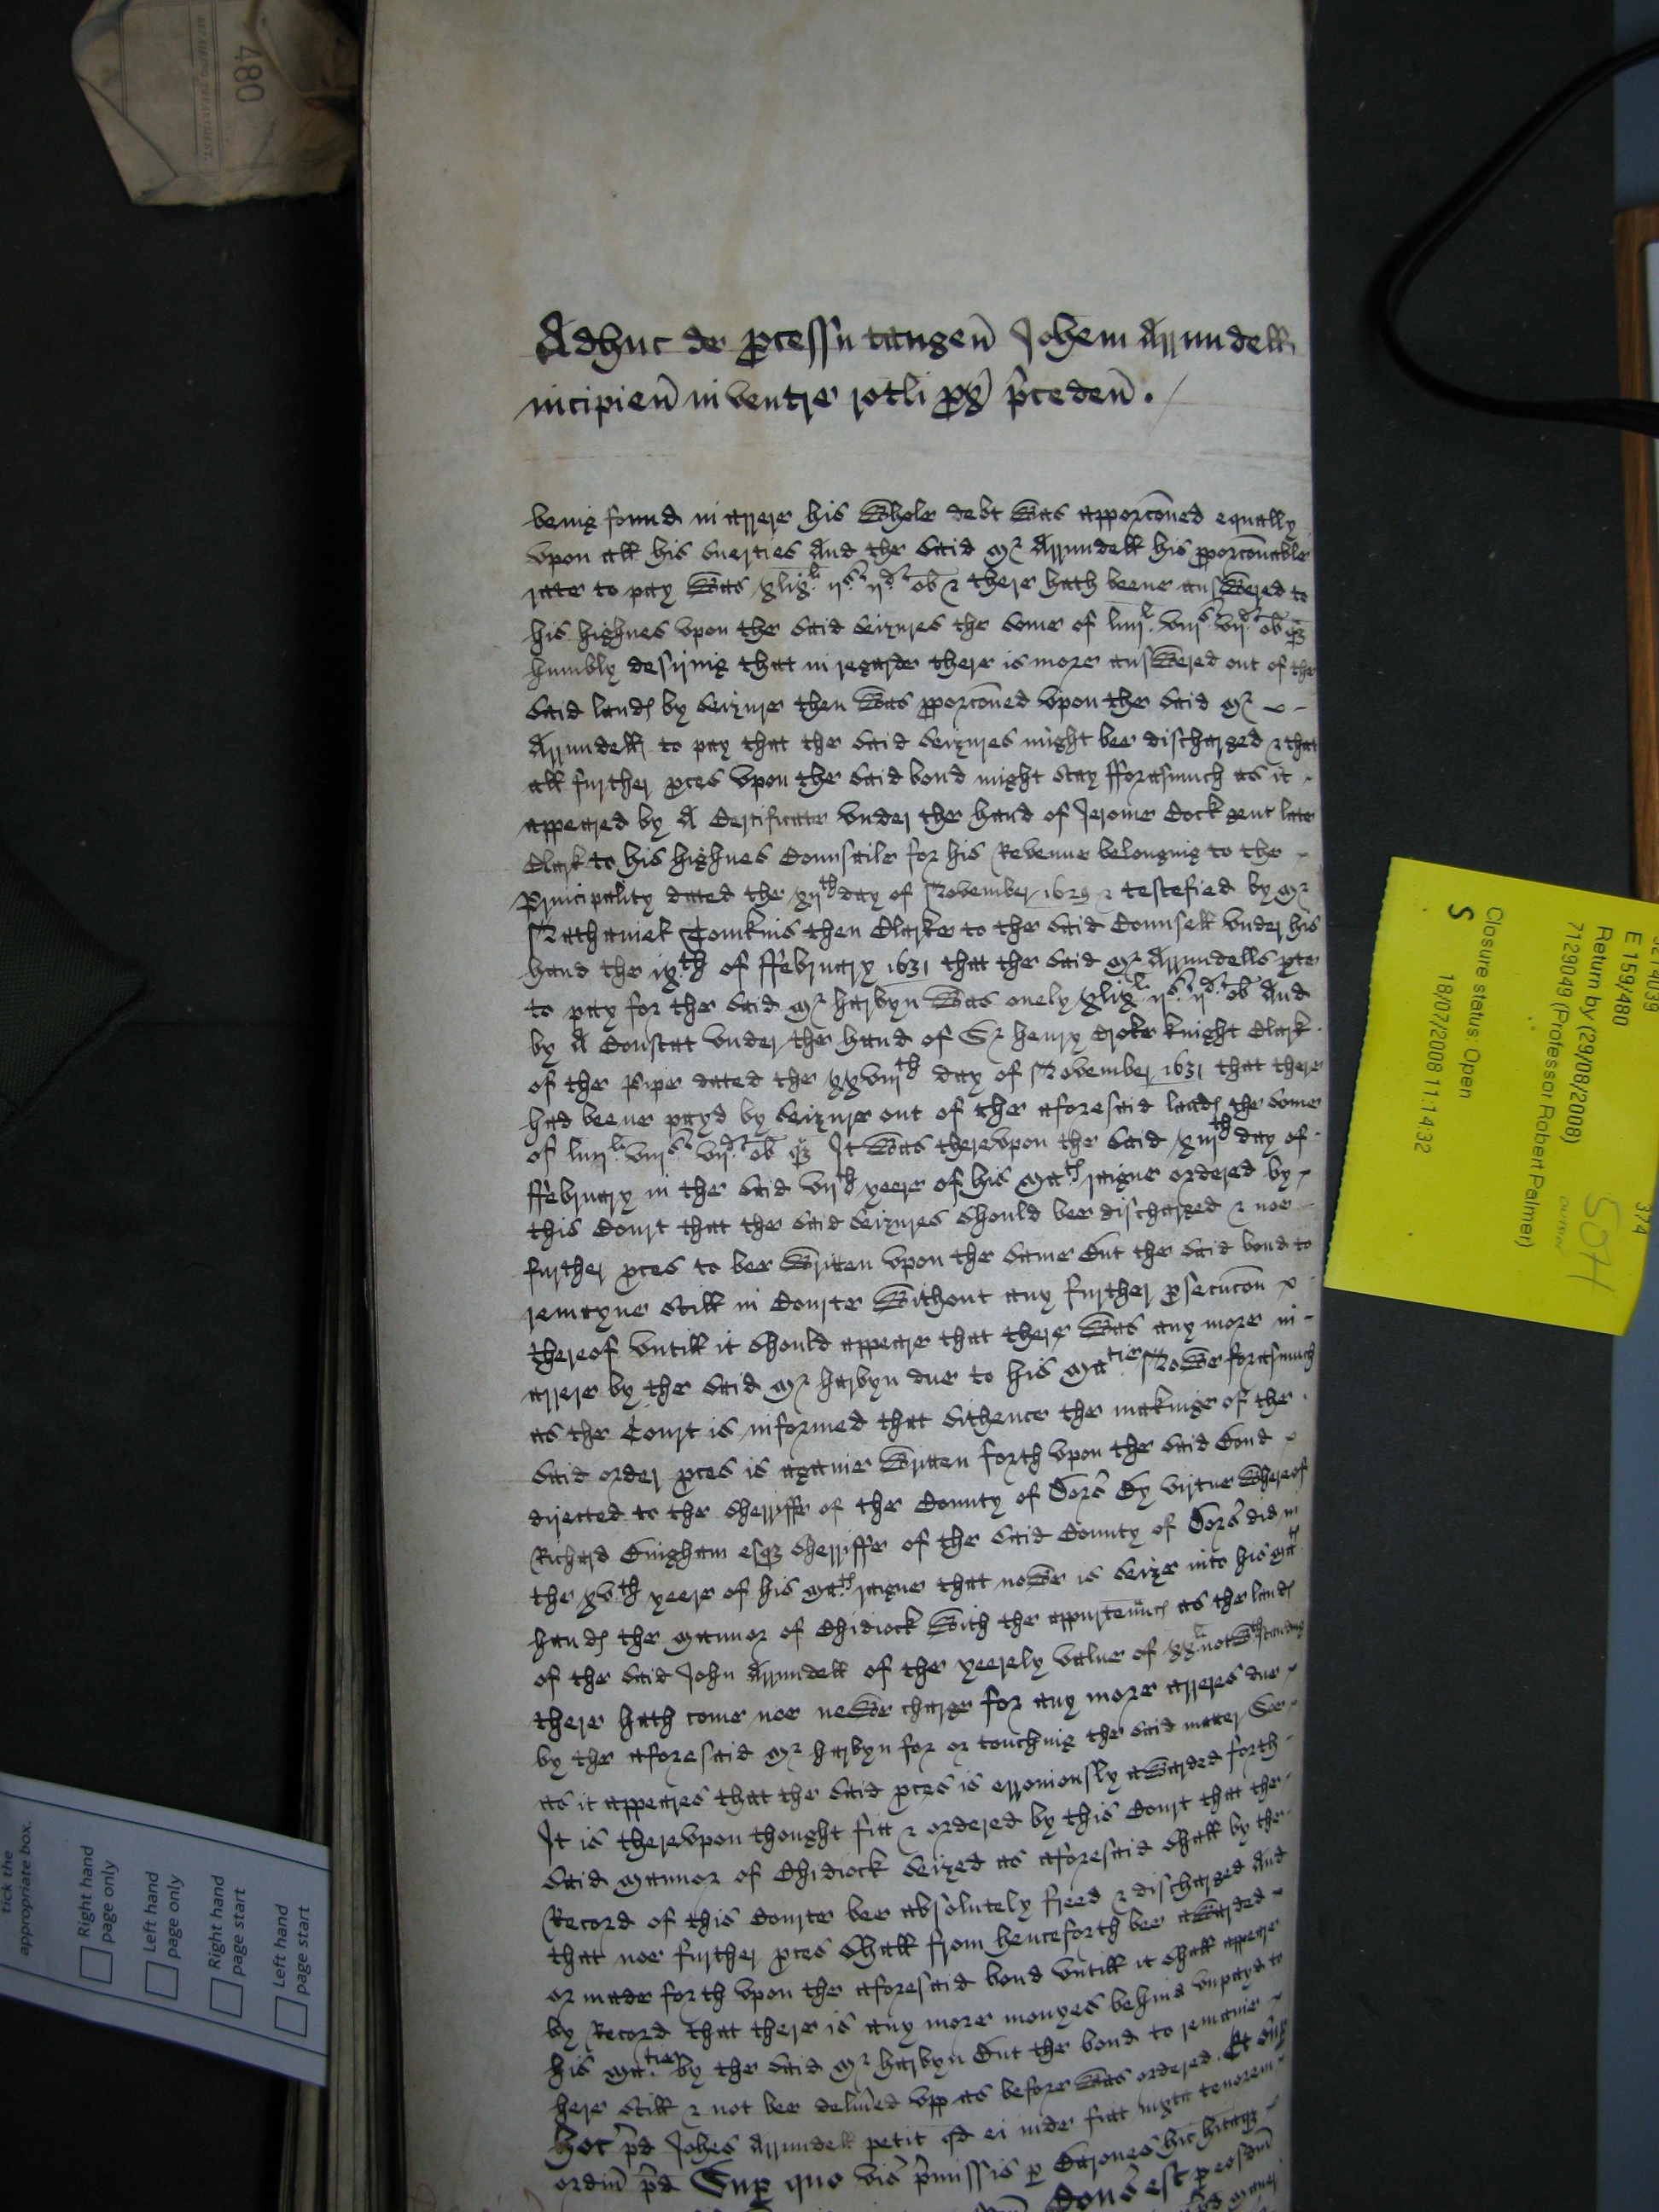 Adhuc de pcessu tangen Johem Arundell
incipien in ventre rotli px pceden.
being found in arrere his whole debt was apporconed equally
vpon all his suerties And the said Mr Arundell his pporconable
rate to pay was xlix li. ijs. ijd. ob & there hath beene answered to
his highnes vpon the said seizures the some of liiij li. viijs vijd ob qz
humbly desiring that in regarde there is more answered out of the
said lands by seizure then was pporconed vpon the said Mr
Arundell to pay that the said seizures might bee discharged & that
all further pces vpon the said bond might stay fforasmuch as it
appeared by A Certificate vnder the hand of Jerome Cock gent late
Clark to his highnes Counsaile for his Revenue belonging to the
Principality dated the xijth day of November 1629 & testefied by Mr
Nathaniel Tomkins then Clarke to the said Counsell vnder his
hand the ixth of ffebruary 1631 that the said Mr Arundells pte
to pay for the said Mr harbyn was onely xlix li. ijs. ijd. ob And
by A Constat vnder the hand of Sr henry Croke knight Clark
of the Pipe dated the xxviijth day of November 1631 that there
had beene payd by seizure out of the aforesaid lands the some
of liiij li. viijs. vijd. ob qz It was therevpon the said xiijth day of
ffebruary in the said vijth yeere of his Mats raigne ordered by
this Court that the said seizures should bee discharged & noe
further pces to bee written vpon the same But the said bond to
remayne still in Courte without any further psecucon
thereof vntill it should appeare that there was any more in
arrere by the said Mr harbyn due to his Matie Nowe forasmuch
as the Court is informed that sithence the makinge of the
said order pces is againe written forth vpon the said bond
directed to the Sherriffe of the County of Dors By virtue whereof
Richard Bingham esqz Sherriffe of the said County of Dors did in
the xvth yeere of his Mats raigne that nowe is seize into his Mats
hands the Mannor of Chidiock with the appurtenncs as the lands
of the said John Arundell of the yeerely value of xx li notwthstanding
there hath come noe newe charge for any more arreres due
by the aforesaid Mr harbyn for or touching the said matter Soe
as it appeares that the said pces is erroniously awarded forth
It is therevpon thought fitt & ordered by this Court that the
said Mannor of Chidiock seized as aforesaid shall by the
Record of this Courte bee absolutely freed & discharged And
that noe further pces shall from henceforth bee awarded
or made forth vpon the aforesaid bond vntill it shall appeare
by Record that there is any more monyes behind vnpayd to
his Matie by the said Mr harbyn But the bond to remaine
here still & not bee delived vpp as before was ordered. Et sup
hoc pd Johes Arundell petit qd ei inde fiat iuxta tenorem
ordin pd Sup quo vis pmissis p Barones hic hitaqz
Cons est p eosdm
480
REPAIRING DEPARTMENT.
tick the
appropriate box.
Right hand
page only
Left hand
page only
Right hand
page start
Left hand
page start
374
E 159/480
Return by (29/08/2008)
7129049 (Professor Robert Palmer)
Closure status: Open
S
18/07/2008 11:14:32